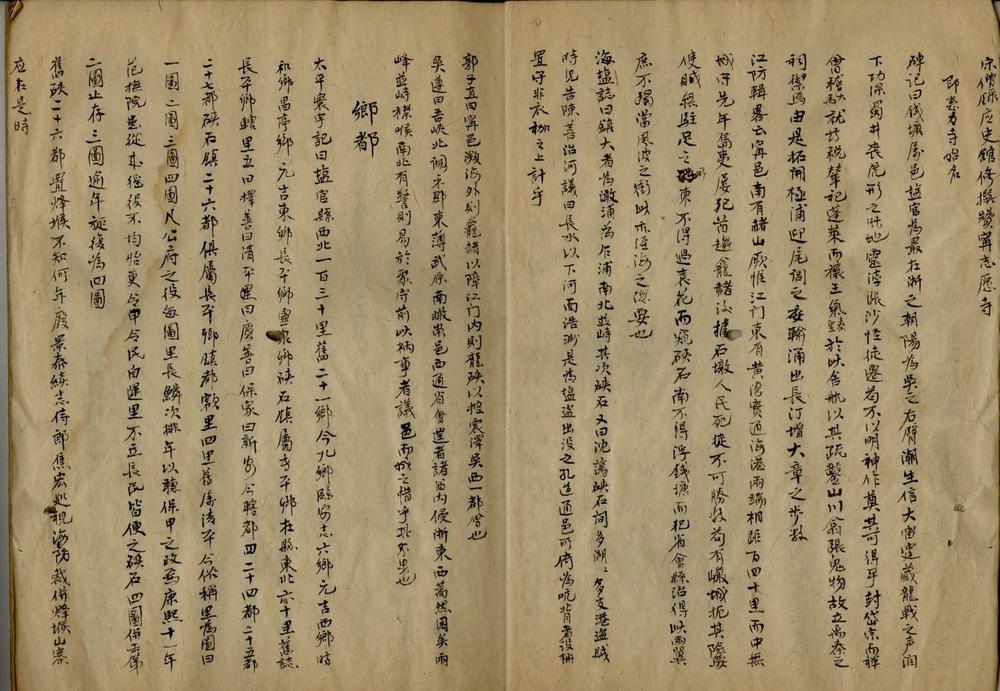 宋僧錄應史館修撰贊寧志愿寺
即惠力寺始名
碑記曰錢塘屬邑塩官為最在浙之朝陽為吳之右臂潮生信大雷還藏龍戰之声洎
下功保蜀井喪虎形之地靈濤漲沙怪徒遷苟不以明神作奠其可得乎封岱宗而禪
會稽就坊稅輦記蓬萊而穰王氣於此舍航以其疏鑿山川翕張鬼物故立禹秦之
祠禜焉由是拓開極浦迎尾閭之委輸涌出長汀增大章之步數
江防輯畧云寧邑南有諸山厥惟江門東有黃灣實通海港兩端相距百四十里而中無
城守先年倭夷屡犯首趨龕赭汝據石墩人民死徙不可勝数苟有巖城扼其險要
使賊無駐足之所東不得過袁花而窺硤石南不得浮錢塘而犯省會縣治得此兩翼
庶不獨當風波之衝此亦經海之隠要也
海塩誌曰鎮大者為澉浦為乍浦南北並峙其次硤石又曰沈蕩硤石間多湖〻多支港盗賊
時見告陳善治河議曰長水以下河而浩渺是為塩盗出没之孔道通邑所倚為吭背者設柵
置守非衣袽之上計乎
郭子直曰寧邑瀕海外則龕諸以障江门内則龍硤以控震澤吳西一都會也
吳遵曰吾峽北調禾郡東薄武原南瞰崇邑西通省會邇者諸酋内侵浙東西蕭然困矣兩
峰並峙襟喉南北有警則易於聚守前此柄事者議邑而城之惜乎其不果也
鄉都
太平寰宇記曰塩官縣西北一百三十里舊二十一鄉今九鄉臨安志六鄉元吉西鄉時
和鄉昌亭鄉元吉東鄉長平鄉靈泉鄉硤石鎮屬長平鄉在縣東北六十里舊誌
長平鄉轄里五曰擇善曰清平里曰慶善曰保家曰新安今轄都四二十四都二十五都
二十七都硤石鎮二十六都俱屬長平鄉鎮都額里四里舊屬清平今俗稱里為圖曰
一圖二圖三圖四圖凡公府之役每圖里長鱗次排年以聽保甲之政焉康熙十一年
范撫院患從來徭役不均怡更令甲令民自運里不立長民皆便之硤石四圖併席
二圖止存三圖逾年旋復為四圖
舊硤二十六都置烽堠不知何年廢景泰續志侍郎焦宏巡視海防裁併烽堠山寨
应在是時